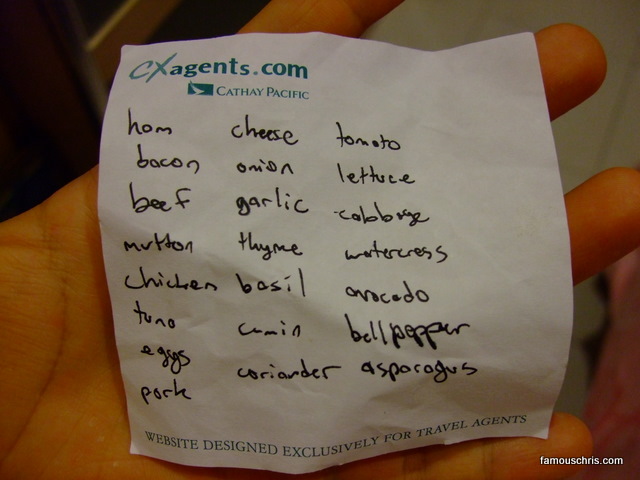 cxagents.com
CATHAY PACIFIC
ham cheese tomato
bacon onion lettuce
beef garlic cabbage
mutton thyme watercress
chicken basil avocado
tuna cumin bellpepper
eggs coriander asparagus
pork
WEBSITE DESIGNED EXCLUSIVELY FOR TRAVEL AGENTS
famouschris.com